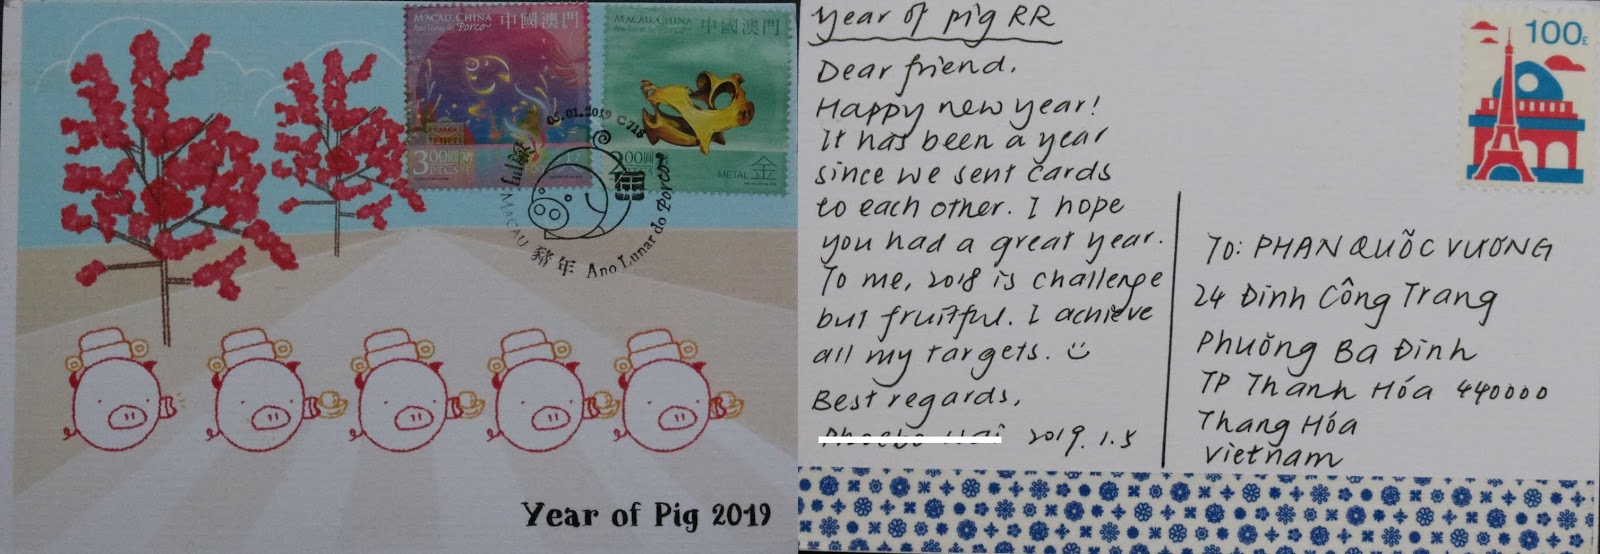 MACAU, CHINA 中國澳門
Ano Lunar do Porco
3.00圓
PTCS
MACAU, CHINA 中國澳門
Ano Lunar do Porco
2.00圓
METAL 金
05.01.2019 C718
澳門 MACAU 豬年 Ano Lunar do Porco
Year of Pig 2019
Year of pig RR
Dear friend,
Happy new year!
It has been a year
since we sent cards
to each other. I hope
you had a great year.
To me, 2018 is challenge
but fruitful. I achieve
all my targets.
Best regards,
2019.1.5
100£
To: PHAN QUỐC VƯƠNG
24 Đinh Công Trang
Phường Ba Đình
TP Thanh Hóa 440000
Thang Hóa
Vietnam